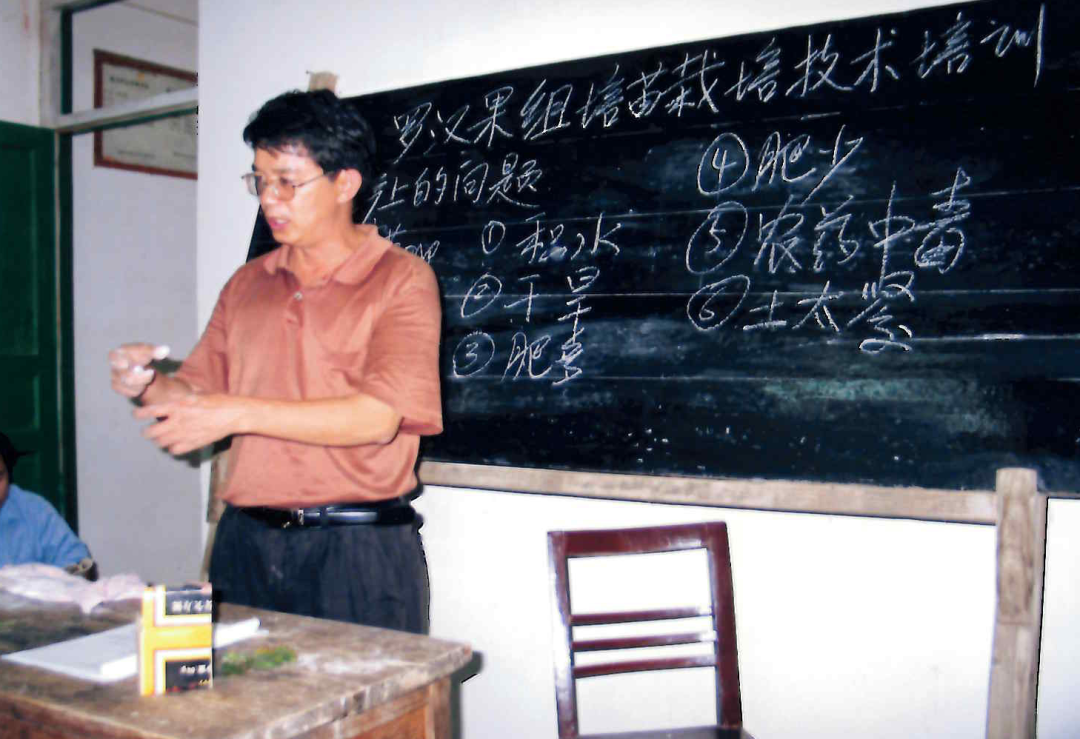 罗汉果组培苗栽培技术培训
的问题
① 积水
② 干旱
③ 肥害
④ 肥少
⑤ 农药中毒
⑥ 土太紧